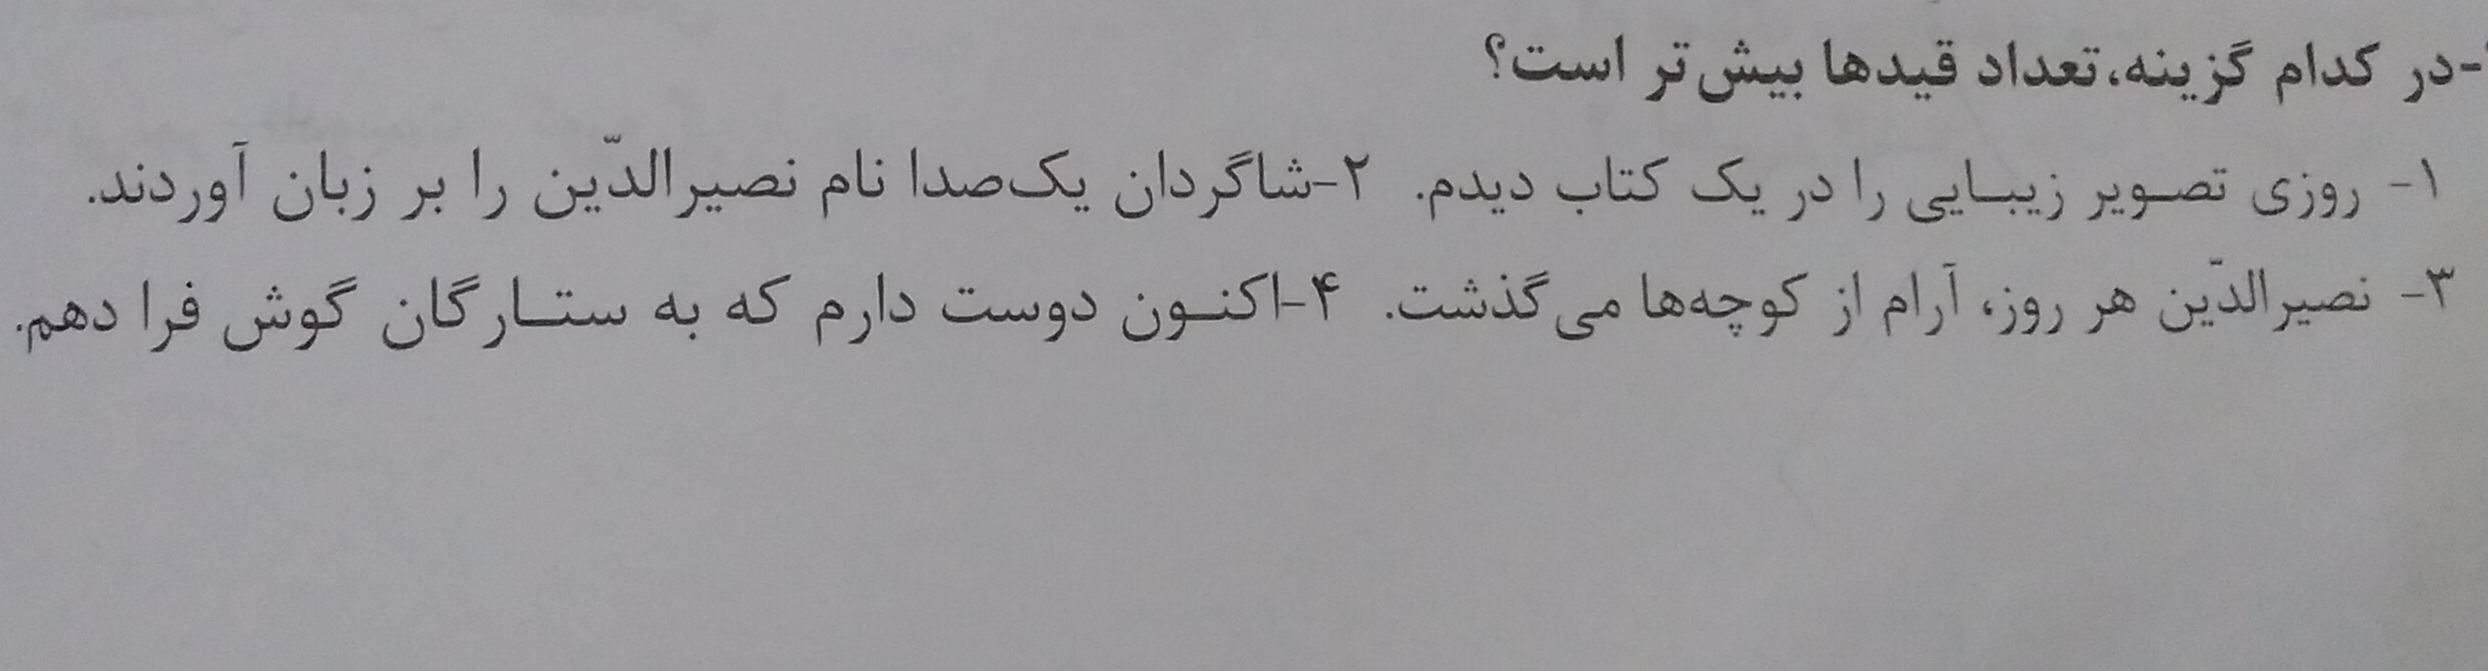 -در کدام گزینه،تعداد قیدها بیش‌تر است؟
۱- روزی تصویر زیبایی را در یک کتاب دیدم. ۲-شاگردان یک‌صدا نام نصیرالدّین را بر زبان آوردند.
۳- نصیرالدّین هر روز، آرام از کوچه‌ها می‌گذشت. ۴-اکنون دوست دارم که به ستارگان گوش فرا دهم.